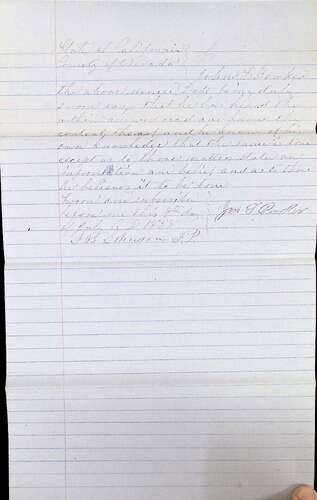 State of California }
County of Nevada }
John T. Fowler
the above named Deft being duly
sworn says that he has heard the
within answer read and knows the
contents thereof and he knows of his
own knowledge that the same is true
except as to those matters stated on
information and belief and as to those
he believes it to be true
Sworn and subscribed
before me this day
of July A.D.
J.P.